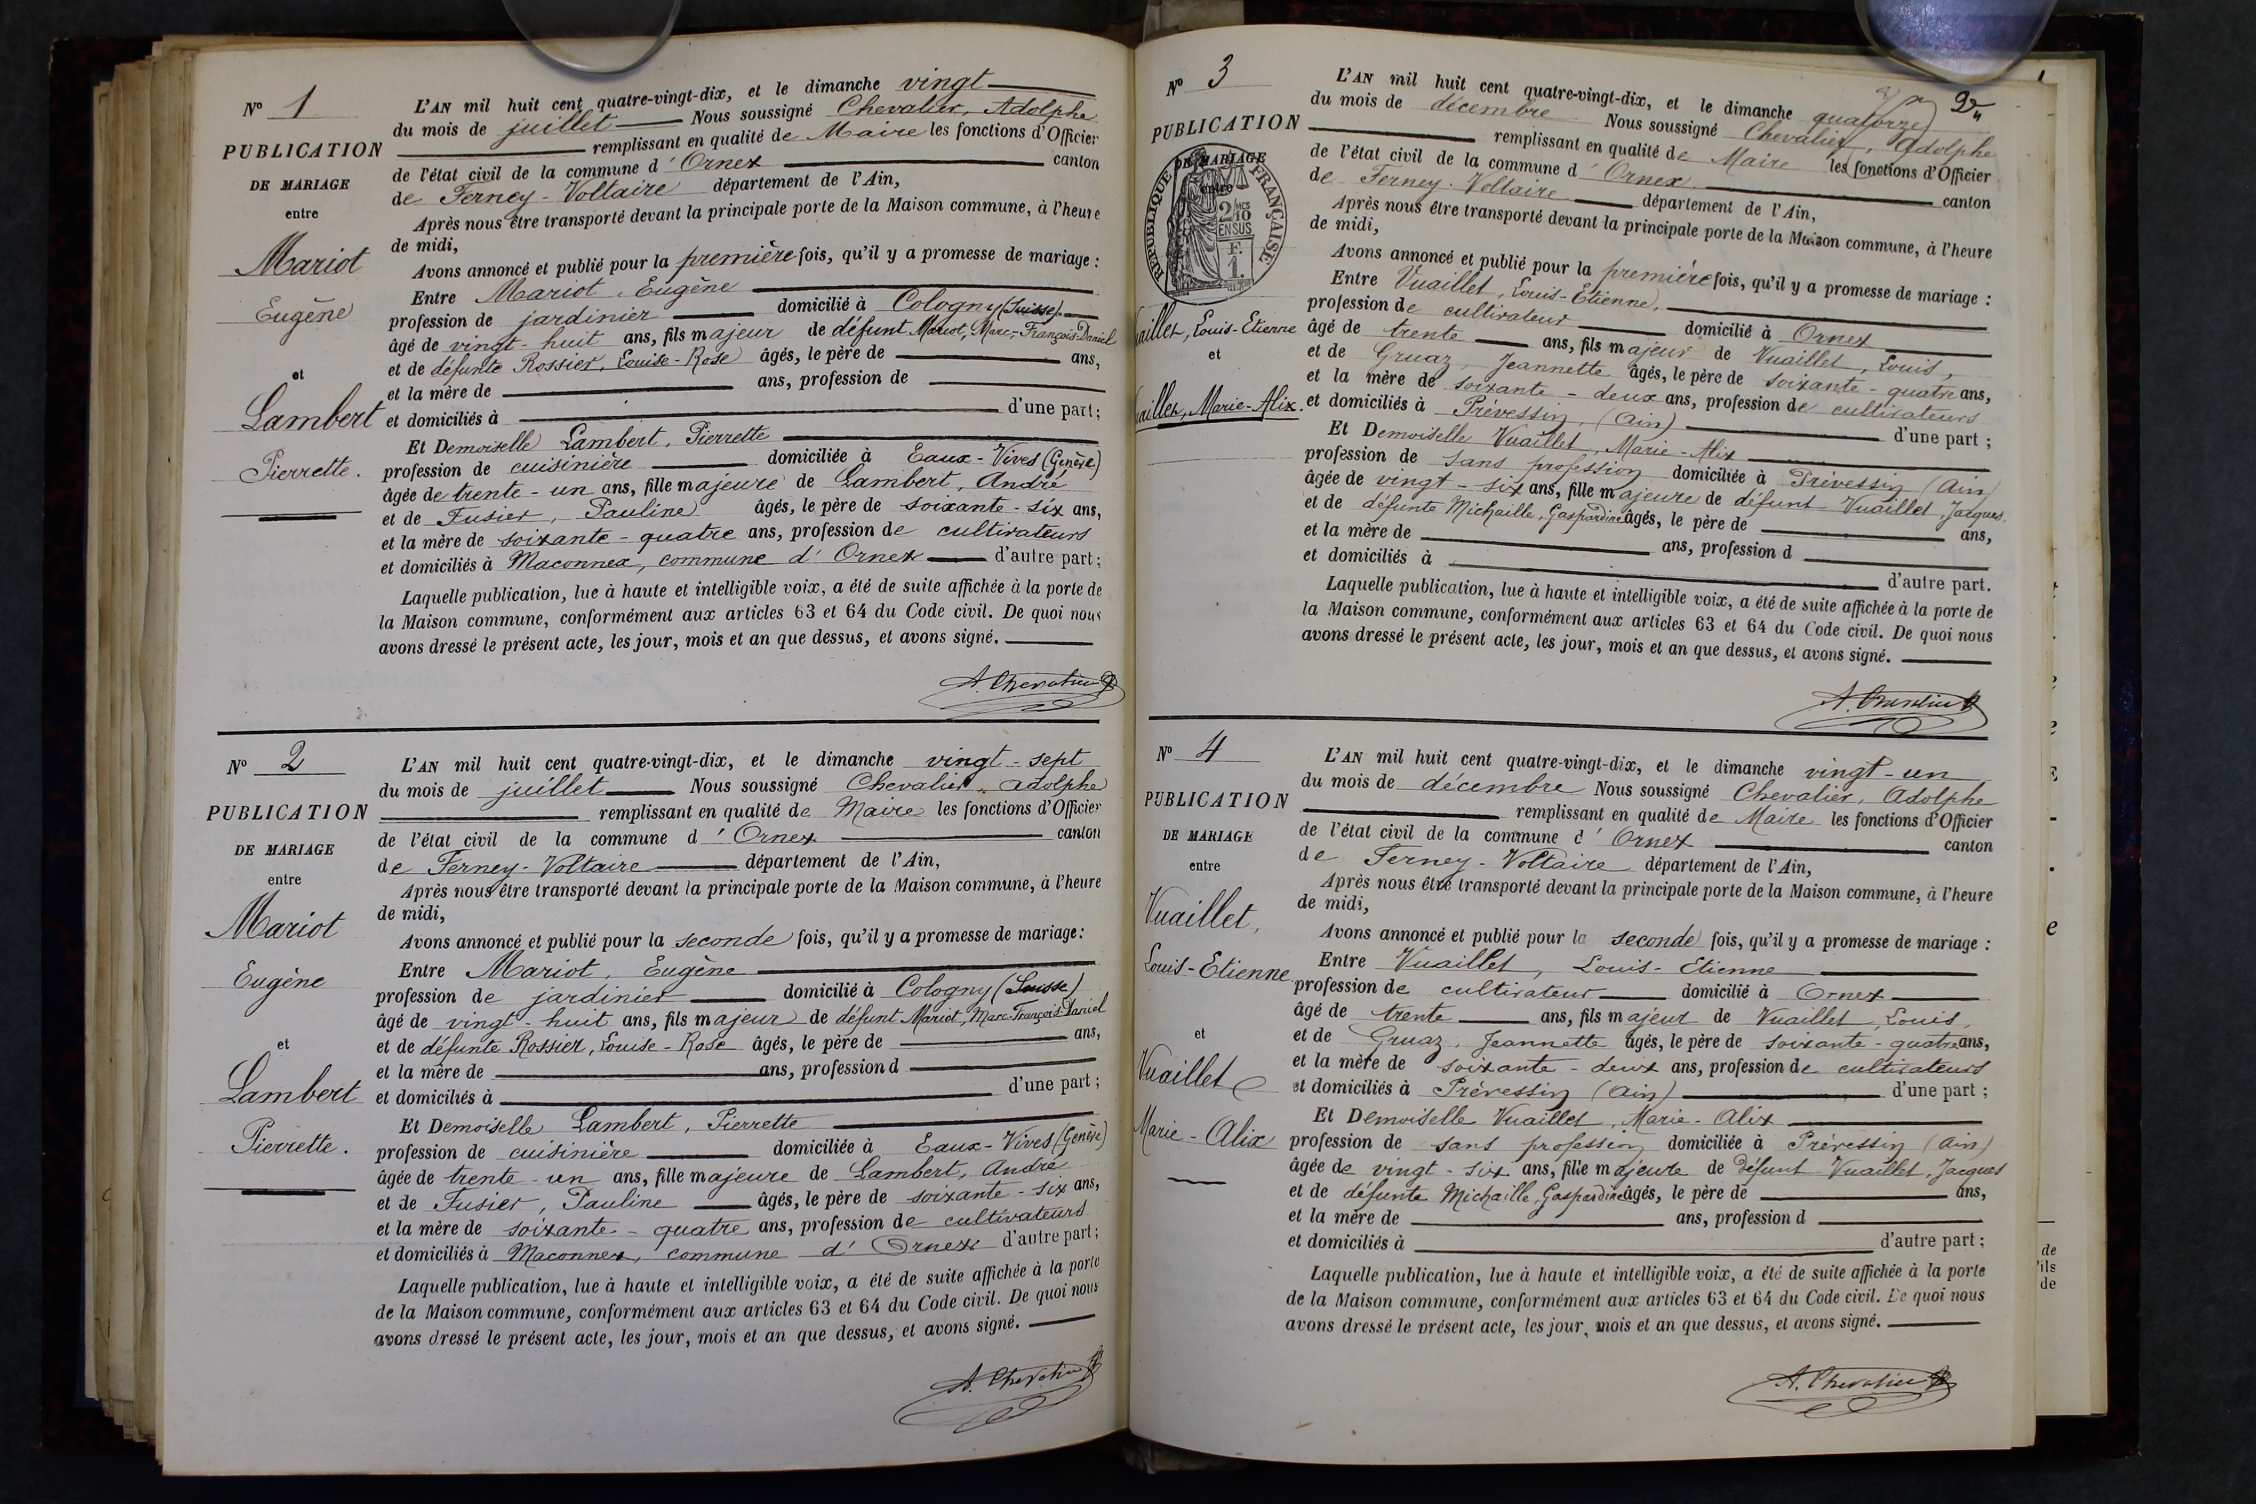 Nº 1
PUBLICATION
DE MARIAGE
entre
Mariot
Eugène
et
Lambert
Pierrette.
L'AN mil huit cent quatre-vingt-dix, et le dimanche vingt
du mois de juillet Nous soussigné Chevalier, Adolphe
remplissant en qualité de Maire les fonctions d'Officier
de l'état civil de la commune d'Ornex canton
de Ferney-Voltaire département de l'Ain,
Après nous être transporté devant la principale porte de la Maison commune, à l'heure
de midi,
Avons annoncé et publié pour la première fois, qu'il y a promesse de mariage :
Entre Mariot, Eugène
profession de jardinier domicilié à Cologny (Suisse)
âgé de vingt-huit ans, fils majeur de défunt Mariot, Marc-François-Daniel
et de défunte Rossier, Louise-Rose âgés, le père de ans,
et la mère de ans, profession de
et domiciliés à d'une part ;
Et Demoiselle Lambert, Pierrette
profession de cuisinière domiciliée à Eaux-Vives (Genève)
âgée de trente-un ans, fille majeure de Lambert, André
et de Fusier, Pauline âgés, le père de soixante-six ans,
et la mère de soixante-quatre ans, profession de cultivateurs
et domiciliés à Maconnex, commune d'Ornex d'autre part ;
Laquelle publication, lue à haute et intelligible voix, a été de suite affichée à la porte de
la Maison commune, conformément aux articles 63 et 64 du Code civil. De quoi nous
avons dressé le présent acte, les jour, mois et an que dessus, et avons signé.
A. Chevalier
Nº 2
PUBLICATION
DE MARIAGE
entre
Mariot
Eugène
et
Lambert
Pierrette.
L'AN mil huit cent quatre-vingt-dix, et le dimanche vingt-sept
du mois de juillet Nous soussigné Chevalier, Adolphe
remplissant en qualité de Maire les fonctions d'Officier
de l'état civil de la commune d'Ornex canton
de Ferney-Voltaire département de l'Ain,
Après nous être transporté devant la principale porte de la Maison commune, à l'heure
de midi,
Avons annoncé et publié pour la seconde fois, qu'il y a promesse de mariage :
Entre Mariot, Eugène
profession de jardinier domicilié à Cologny (Suisse)
âgé de vingt-huit ans, fils majeur de défunt Mariot, Marc-François-Daniel
et de défunte Rossier, Louise-Rose âgés, le père de ans,
et la mère de ans, profession d
et domiciliés à d'une part ;
Et Demoiselle Lambert, Pierrette
profession de cuisinière domiciliée à Eaux-Vives (Genève)
âgée de trente-un ans, fille majeure de Lambert, André
et de Fusier, Pauline âgés, le père de soixante-six ans,
et la mère de soixante-quatre ans, profession de cultivateurs
et domiciliés à Maconnex, commune d'Ornex d'autre part ;
Laquelle publication, lue à haute et intelligible voix, a été de suite affichée à la porte
de la Maison commune, conformément aux articles 63 et 64 du Code civil. De quoi nous
avons dressé le présent acte, les jour, mois et an que dessus, et avons signé.
A. Chevalier
Nº 3
PUBLICATION
DE MARIAGE
entre
RÉPUBLIQUE FRANÇAISE
2/10 EN SUS
F. 1.
aillet, Louis-Etienne
et
aillet, Marie-Alix.
L'AN mil huit cent quatre-vingt-dix, et le dimanche quatorze
du mois de décembre Nous soussigné Chevalier, Adolphe
remplissant en qualité de Maire les fonctions d'Officier
de l'état civil de la commune d'Ornex canton
de Ferney-Voltaire département de l'Ain,
Après nous être transporté devant la principale porte de la Maison commune, à l'heure
de midi,
Avons annoncé et publié pour la première fois, qu'il y a promesse de mariage :
Entre Vuaillet, Louis-Etienne,
profession de cultivateur domicilié à Ornex
âgé de trente ans, fils majeur de Vuaillet, Louis,
et de Gruaz, Jeannette âgés, le père de soixante-quatre ans,
et la mère de soixante-deux ans, profession de cultivateurs
et domiciliés à Prévessin, (Ain) d'une part ;
Et Demoiselle Vuaillet, Marie-Alix
profession de sans profession domiciliée à Prévessin (Ain)
âgée de vingt-six ans, fille majeure de défunt Vuaillet, Jacques,
et de défunte Michaille, Gaspardine âgés, le père de ans,
et la mère de ans, profession d
et domiciliés à d'autre part.
Laquelle publication, lue à haute et intelligible voix, a été de suite affichée à la porte de
la Maison commune, conformément aux articles 63 et 64 du Code civil. De quoi nous
avons dressé le présent acte, les jour, mois et an que dessus, et avons signé.
A. Chevalier
Nº 4
PUBLICATION
DE MARIAGE
entre
Vuaillet,
Louis-Etienne
et
Vuaillet
Marie-Alix
L'AN mil huit cent quatre-vingt-dix, et le dimanche vingt-un
du mois de décembre Nous soussigné Chevalier, Adolphe
remplissant en qualité de Maire les fonctions d'Officier
de l'état civil de la commune d'Ornex canton
de Ferney-Voltaire département de l'Ain,
Après nous être transporté devant la principale porte de la Maison commune, à l'heure
de midi,
Avons annoncé et publié pour la seconde fois, qu'il y a promesse de mariage :
Entre Vuaillet, Louis-Etienne
profession de cultivateur domicilié à Ornex
âgé de trente ans, fils majeur de Vuaillet, Louis,
et de Gruaz, Jeannette âgés, le père de soixante-quatre ans,
et la mère de soixante-deux ans, profession de cultivateurs
et domiciliés à Prévessin (Ain) d'une part ;
Et Demoiselle Vuaillet, Marie-Alix
profession de sans profession domiciliée à Prévessin (Ain)
âgée de vingt-six ans, fille majeure de défunt Vuaillet, Jacques
et de défunte Michaille, Gaspardine âgés, le père de ans,
et la mère de ans, profession d
et domiciliés à d'autre part ;
Laquelle publication, lue à haute et intelligible voix, a été de suite affichée à la porte
de la Maison commune, conformément aux articles 63 et 64 du Code civil. De quoi nous
avons dressé le présent acte, les jour, mois et an que dessus, et avons signé.
A. Chevalier